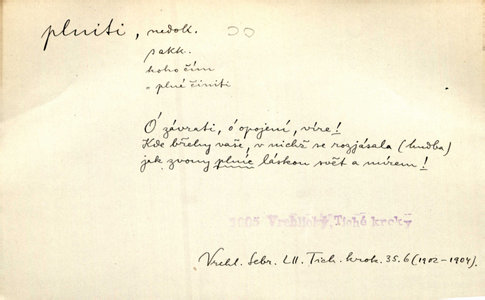 plniti, nedok.
sakk.
koho čím
= plné činiti
Ó závrati, ó opojení, víre!
Kde břehy vaše, v nichž se rozjásala (hudba)
jak zvony plníc láskou svět a mírem!
3605 Vrchlický, Tiché kroky
Vrchl. Sebr. LII. Tich. krok. 35.6 (1902-1904).